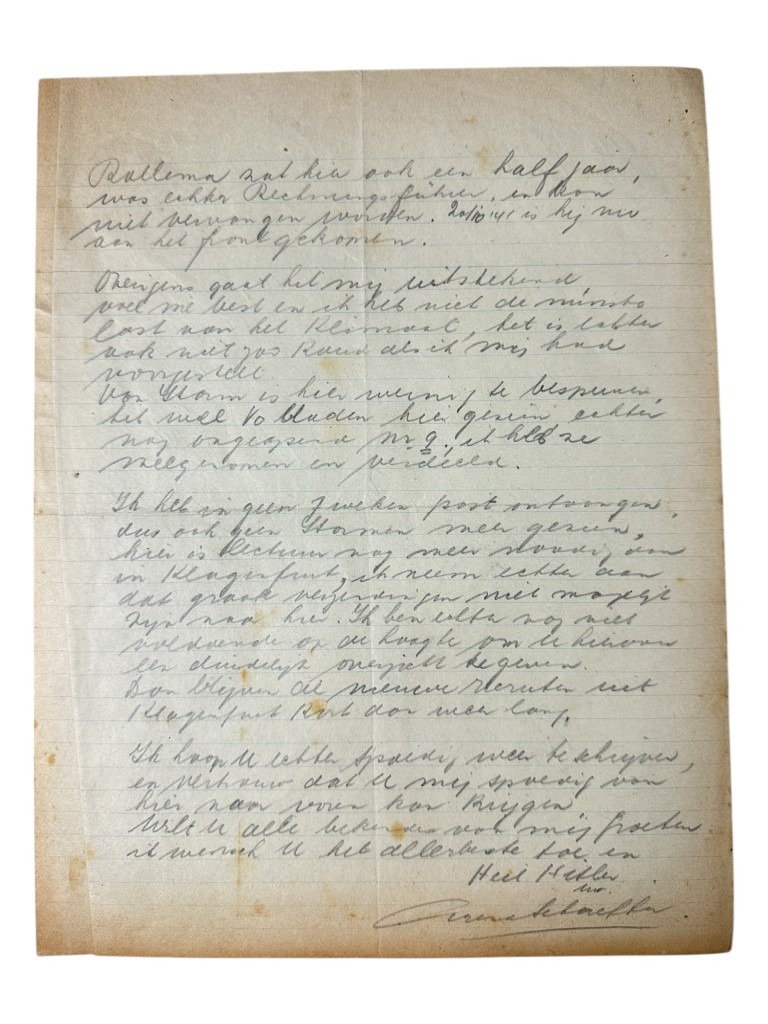 Rollema zat hier ook een half jaar,
was echter Rechnungsführer, en kon
niet vervangen worden. 20/10 '41 is hij nu
aan het front gekomen.
Overigens gaat het mij uitstekend,
voel me best en ik heb niet de minste
last van het Klimaat, het is echter
ook niet zoo koud als ik mij had
voorgesteld
Van Storm is hier weinig te bespeuren,
heb wel 40 bladen hier gezien echter
nog ongeopend nr 9., ik heb ze
meegenomen en verdeeld.
Ik heb in geen 7 weken post ontvangen,
dus ook geen Stormen meer gezien,
hier is lectuur nog meer noodig dan
in Klagenfurt, ik neem echter aan
dat groote verzendingen niet mogelijk
zijn naar hier. Ik ben echter nog niet
voldoende op de hoogte om U hiervan
een duidelijk overzicht te geven.
Dan blijven de nieuwe recruten uit
Klagenfurt kort dan weer lang,
Ik hoop U echter spoedig weer te schrijven,
en vertrouw dat U mij spoedig van
hier naar voren kan krijgen
Wilt U alle bekenden van mij groeten
ik wensch U het allerbeste toe en
Heil Hitler